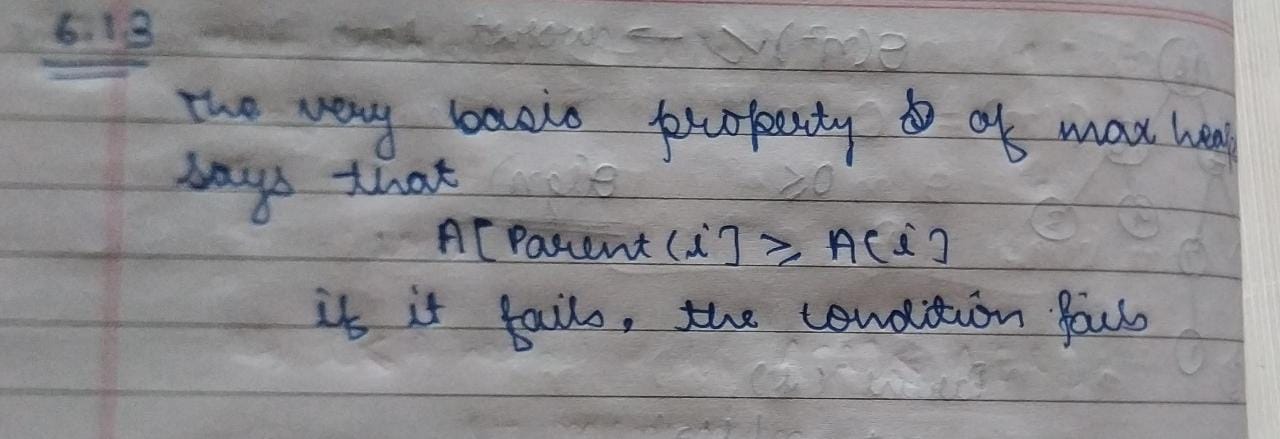 6.1.3
The very basic property of max heap
says that
A[Parent(i] ≥ A[i]
if it fails, the condition fails